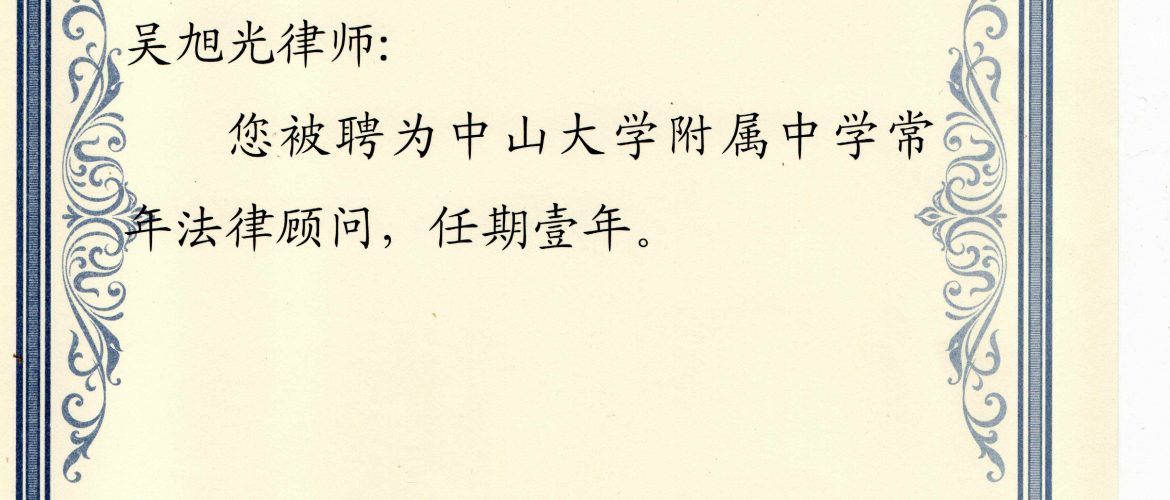 吴旭光律师:
您被聘为中山大学附属中学常
年法律顾问，任期壹年。